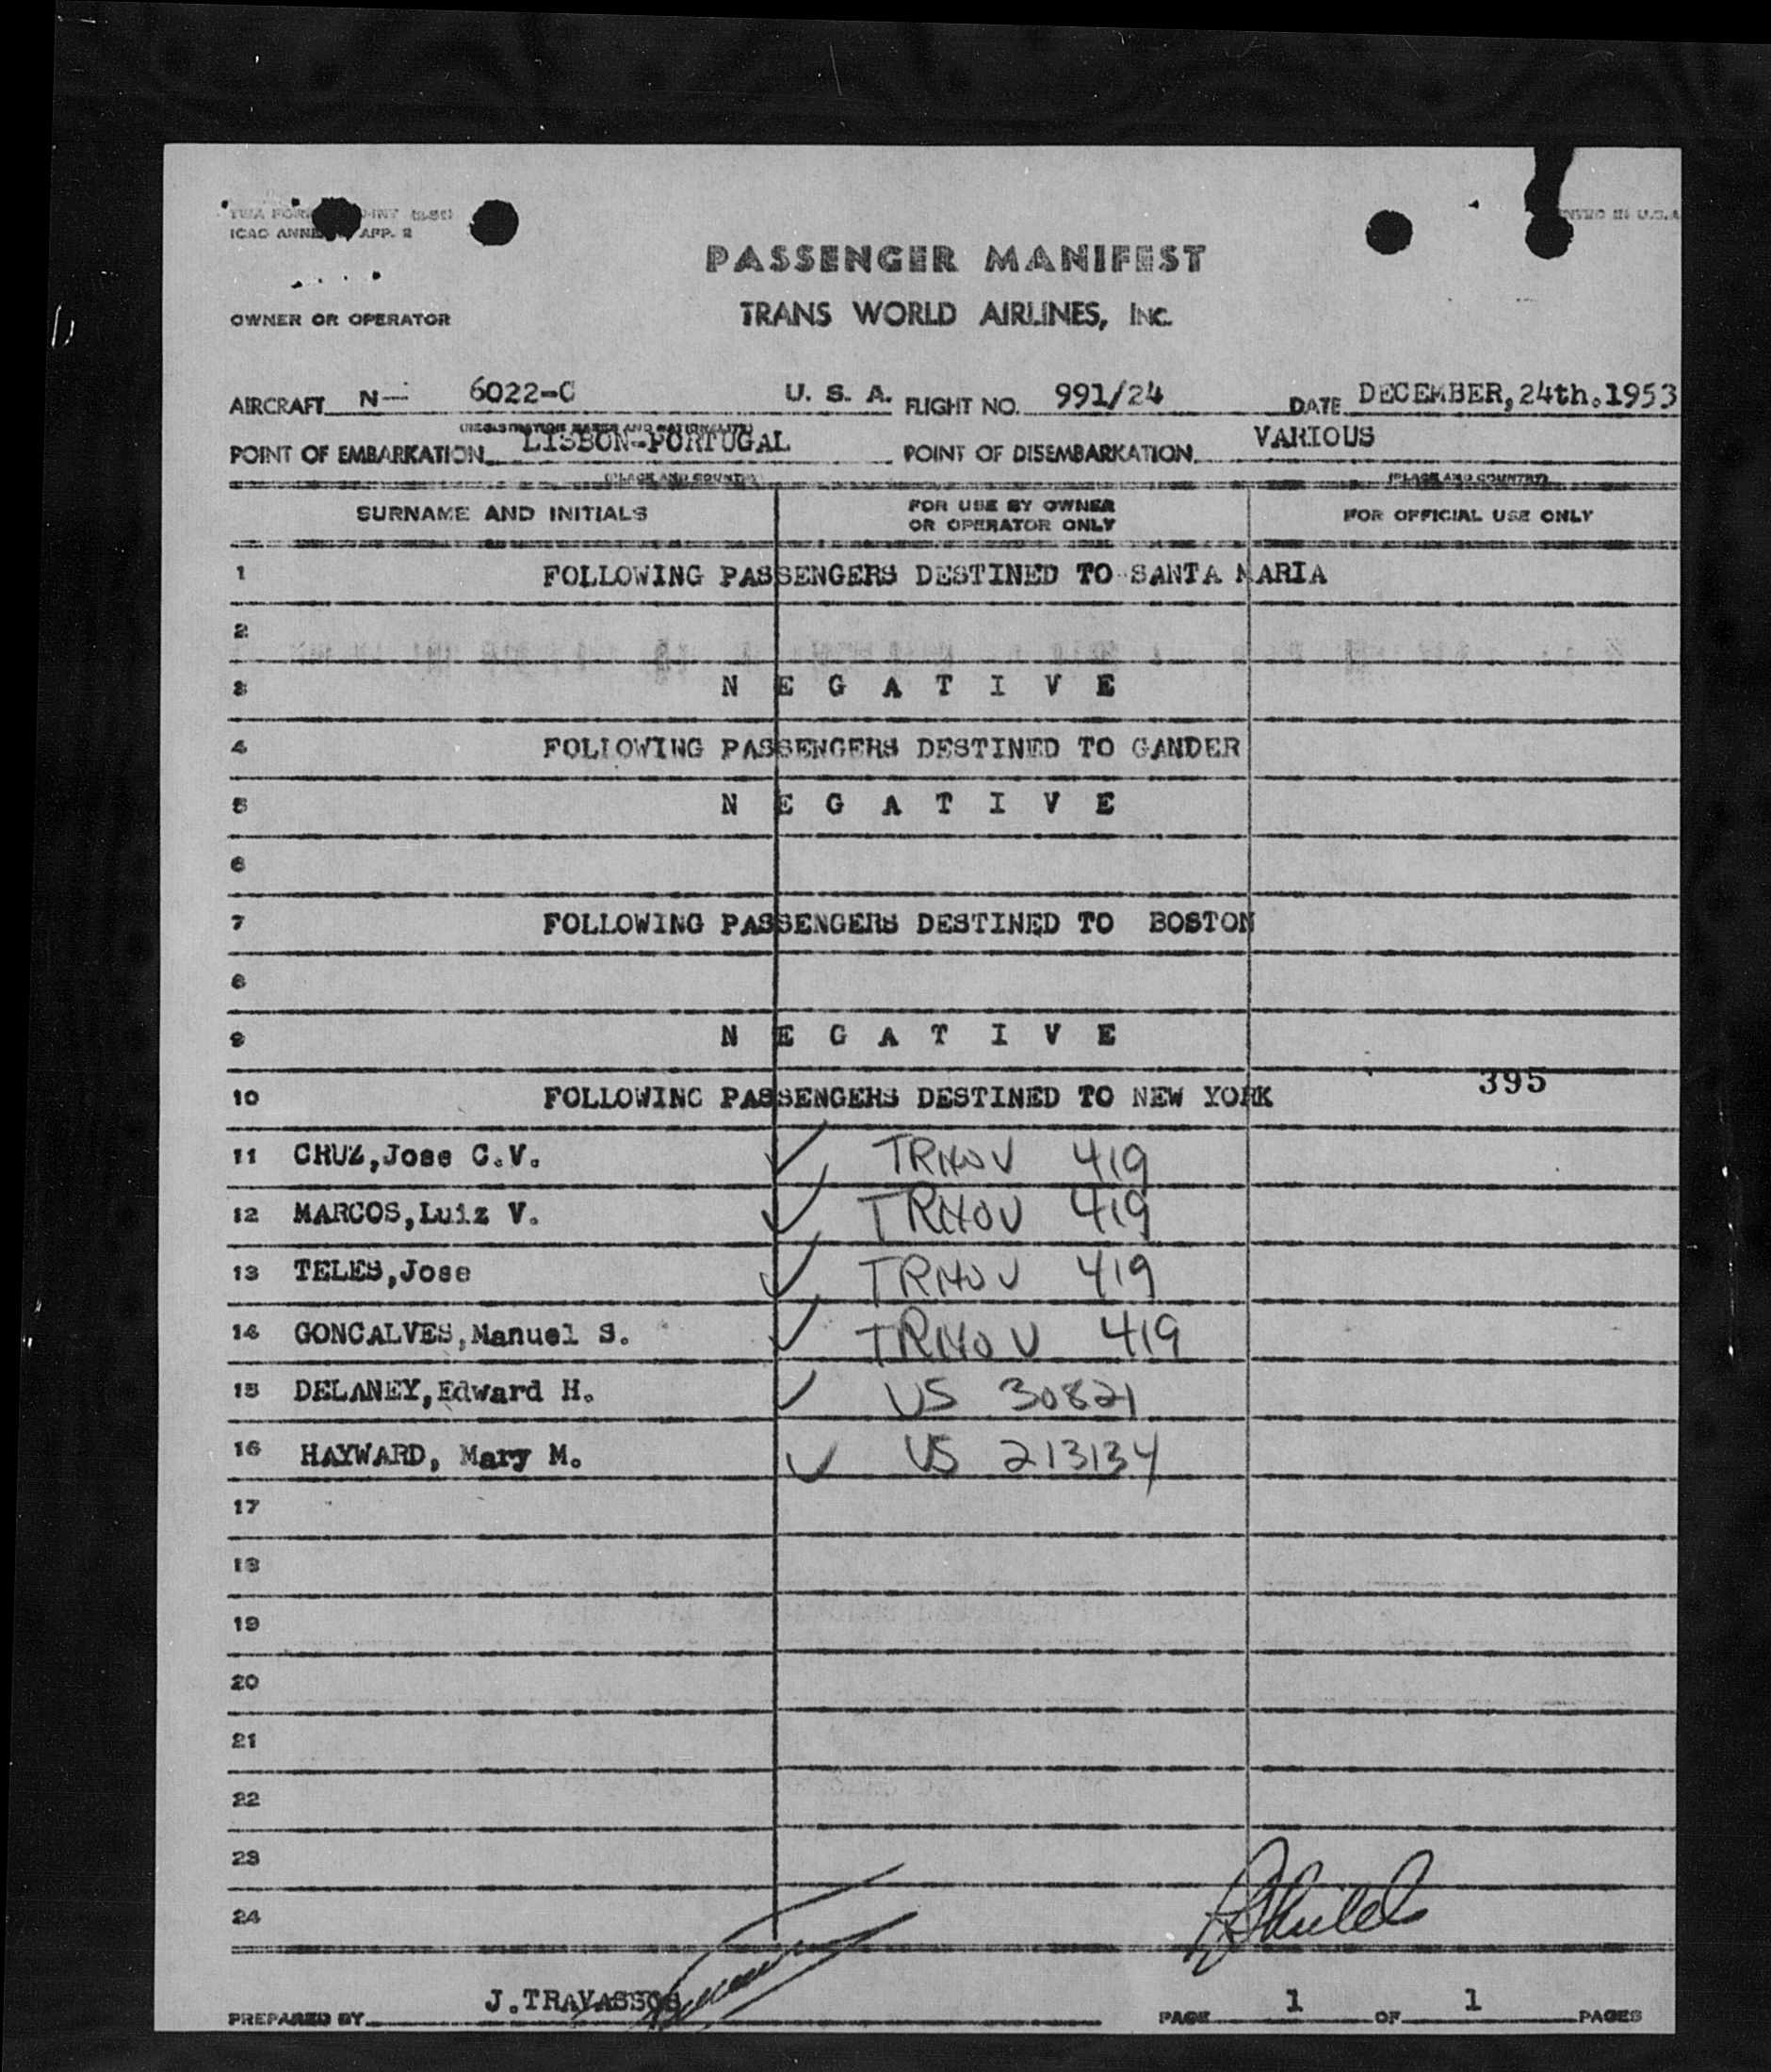 TWA FORM
ICAO ANNEX APP. 2
PASSENGER MANIFEST
OWNER OR OPERATOR TRANS WORLD AIRLINES, INC.
AIRCRAFT N- 6022-C U. S. A. FLIGHT NO. 991/24 DATE DECEMBER, 24th.1953
(REGISTRATION MARKS AND NATIONALITY)
POINT OF EMBARKATION LISBON-PORTUGAL POINT OF DISEMBARKATION VARIOUS
(PLACE AND COUNTRY) (PLACE AND COUNTRY)
SURNAME AND INITIALS FOR USE BY OWNER OR OPERATOR ONLY FOR OFFICIAL USE ONLY
1 FOLLOWING PASSENGERS DESTINED TO SANTA MARIA
2
3 N E G A T I V E
4 FOLLOWING PASSENGERS DESTINED TO GANDER
5 N E G A T I V E
6
7 FOLLOWING PASSENGERS DESTINED TO BOSTON
8
9 N E G A T I V E
10 FOLLOWING PASSENGERS DESTINED TO NEW YORK 395
11 CRUZ,Jose C.V. ✓ 419
12 MARCOS,Luiz V. ✓ 419
13 TELES,Jose ✓ 419
14 GONCALVES,Manuel S. ✓ 419
15 DELANEY,Edward H. ✓ US 30821
16 HAYWARD, Mary M. ✓ US 213134
17
18
19
20
21
22
23
24
PREPARED BY J.TRAVASSOS PAGE 1 OF 1 PAGES